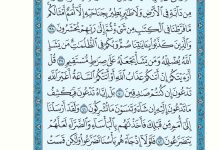 مِن دَآبَّةٍ فِي ٱلْأَرْضِ وَلَا طَٰٓئِرٍ يَطِيرُ بِجَنَاحَيْهِ إِلَّآ أُمَمٌ أَمْثَالُكُم
مَّا فَرَّطْنَا فِي ٱلْكِتَٰبِ مِن شَيْءٍ ثُمَّ إِلَىٰ رَبِّهِمْ يُحْشَرُونَ ٣٨
وَٱلَّذِينَ كَذَّبُوا۟ بِـَٔايَٰتِنَا صُمٌّ وَبُكْمٌ فِي ٱلظُّلُمَٰتِ مَن يَشَإِ
ٱللَّهُ يُضْلِلْهُ وَمَن يَشَأْ يَجْعَلْهُ عَلَىٰ صِرَٰطٍ مُّسْتَقِيمٍ ٣٩ قُلْ
أَرَءَيْتَكُمْ إِنْ أَتَىٰكُمْ عَذَابُ ٱللَّهِ أَوْ أَتَتْكُمُ ٱلسَّاعَةُ أَغَيْرَ ٱللَّهِ
تَدْعُونَ إِن كُنتُمْ صَٰدِقِينَ ٤٠ بَلْ إِيَّاهُ تَدْعُونَ فَيَكْشِفُ
مَا تَدْعُونَ إِلَيْهِ إِن شَآءَ وَتَنسَوْنَ مَا تُشْرِكُونَ ٤١ وَلَقَدْ أَرْسَلْنَآ
إِلَىٰٓ أُمَمٍ مِّن قَبْلِكَ فَأَخَذْنَٰهُم بِٱلْبَأْسَآءِ وَٱلضَّرَّآءِ لَعَلَّهُمْ
يَتَضَرَّعُونَ ٤٢ فَلَوْلَآ إِذْ جَآءَهُم بَأْسُنَا تَضَرَّعُوا۟ وَلَٰكِن قَسَتْ